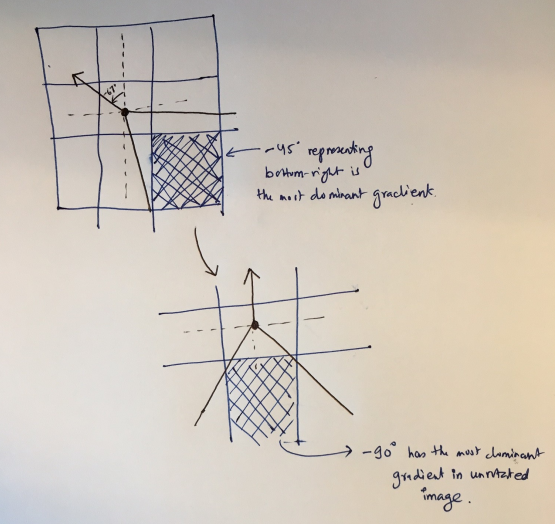 -67°
-45° representing
bottom-right is
the most dominant gradient.
-90° has the most dominant
gradient in unrotated
image.